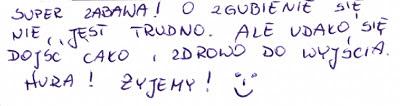 SUPER ZABAWA! O ZGUBIENIE SIĘ
NIE JEST TRUDNO. ALE UDAŁO SIĘ
DOJŚĆ CAŁO I ZDROWO DO WYJŚCIA.
HURA! ŻYJEMY!